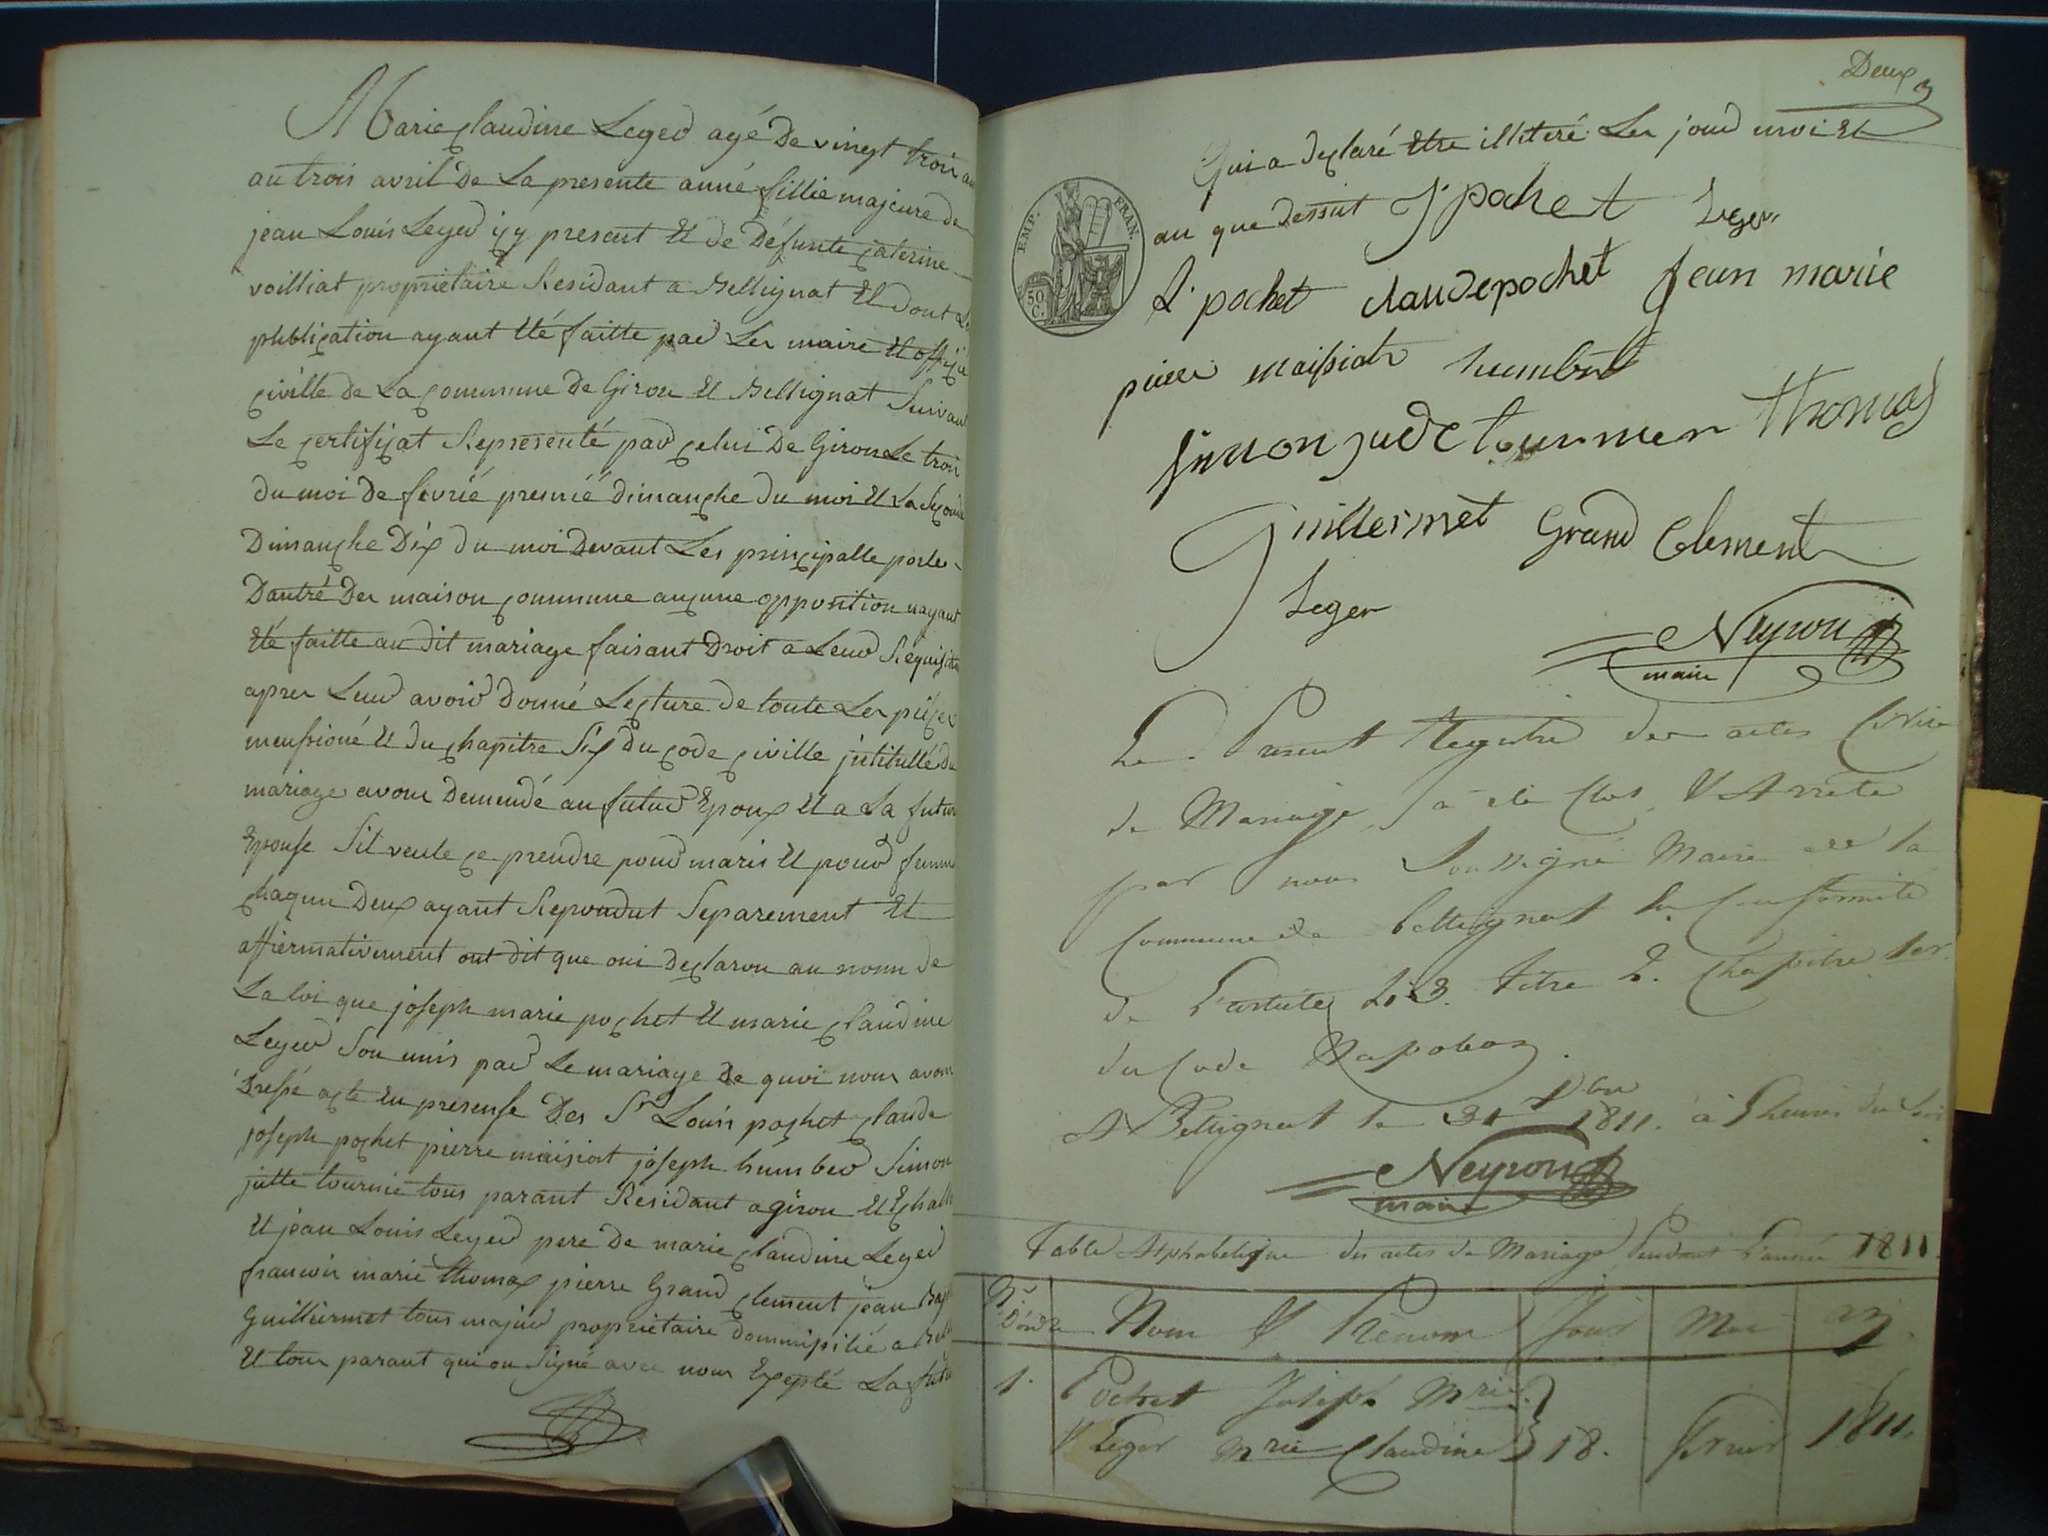 Marie claudine Leger agé De vingt trois an
au trois avril De La presente anné fillie majeure de
jean Louis Leger içy present Et de Défunte çaterine
voilliat proprietaire Residant a Bellignat Et dont La
publiçation ayant Eté faitte par Les maire Et offiçié
çiville de La çommune De Giron Et Bellignat Suivant
Le çertifiçat Représenté par çelui De Giron Le trois
du moi De fevrié premié dimançhe du moi Et La Seçonde
Dimançhe Dix du moi Devant Les prinçipalle porte
Dantré Des maison çommune auçune opposition nayant
Eté faitte au dit mariage faisant Droit a Leur Requisition
apres Leur avoir Donné Leçture de toute Les pièçes
mensioné Et du çhapitre Six Du çode çiville jntitullé du
mariage avons Demendé au futur Epoux Et a La future
Epouse Sil veule çe prendre pour maris Et pour femme
çhaqun Deux ayant Repondut Separement Et
affiermativement ont dit que oui Deçlarons au nom de
La loi que joseph marie poçhet Et marie çlaudine
Leger Son unis par Le mariage De quoi nous avons
Dressé açte En presense Des Sr Louis poçhet çlaude
joseph poçhet pierre maissiat joseph humber Simon
jutte tournié tous parant Residant a giron Et Eçhall
Et jean Louis Leger pere De marie çlaudine Leger
francois marie thomax pierre Grand çlement jean Bap
Guilliermet tous majur proprietaire dommiçilié a Bell
Et tous parant qui on Signé avec nous Exçepté La futu
Deux
Qui a deçlaré Etre illiteré Les jour moi Et
an que dessut J pochet Leger
L. pochet claude pochet Jean marie
pierre maissiat humbert
simon jude tournier thomas
Guillermet Grand Clement
Leger
Neyron
maire
EMP. FRAN.
50 C.
Le Present Registre des actes Civils
de Mariage, a été Clos & Arrêté
par nous Soussigné Maire de la
Commune de Bellignat En Conformité
de L'article 43. titre 2. Chapitre 1er.
du Code Napoleon.
A Bellignat le 31 Xbre 1811. à 5 heures du Soir
Neyron
maire
Table Alphabetique des actes de Mariage Pendant L'année 1811.
No. D'ordre Nom & Prénom Jour Moi an.
1. Pochet Joseph Mrie
& Leger Mrie Claudine 18. fevrier 1811.